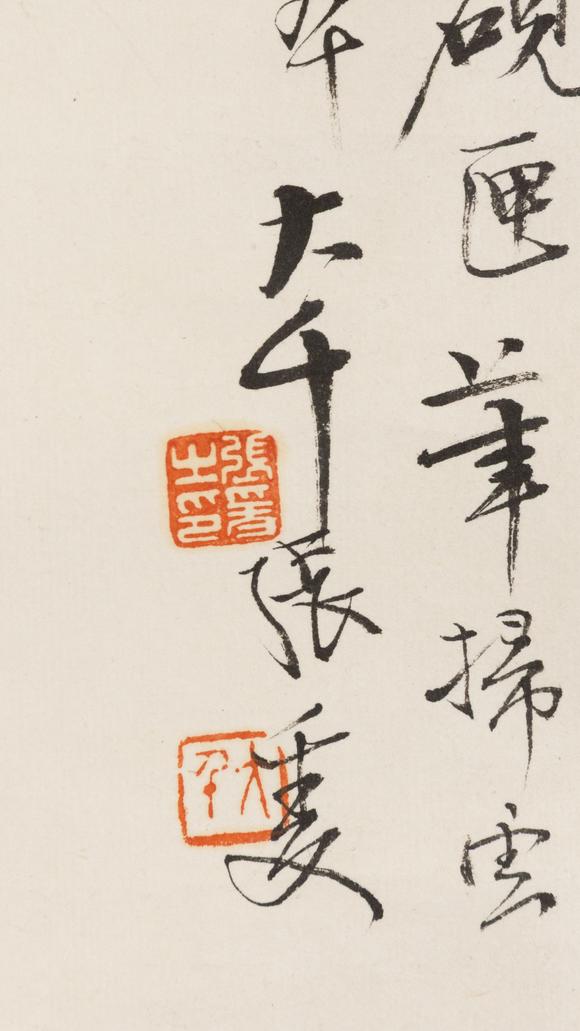 硯匣筆掃雲
大千張爰
張爰之印
大千